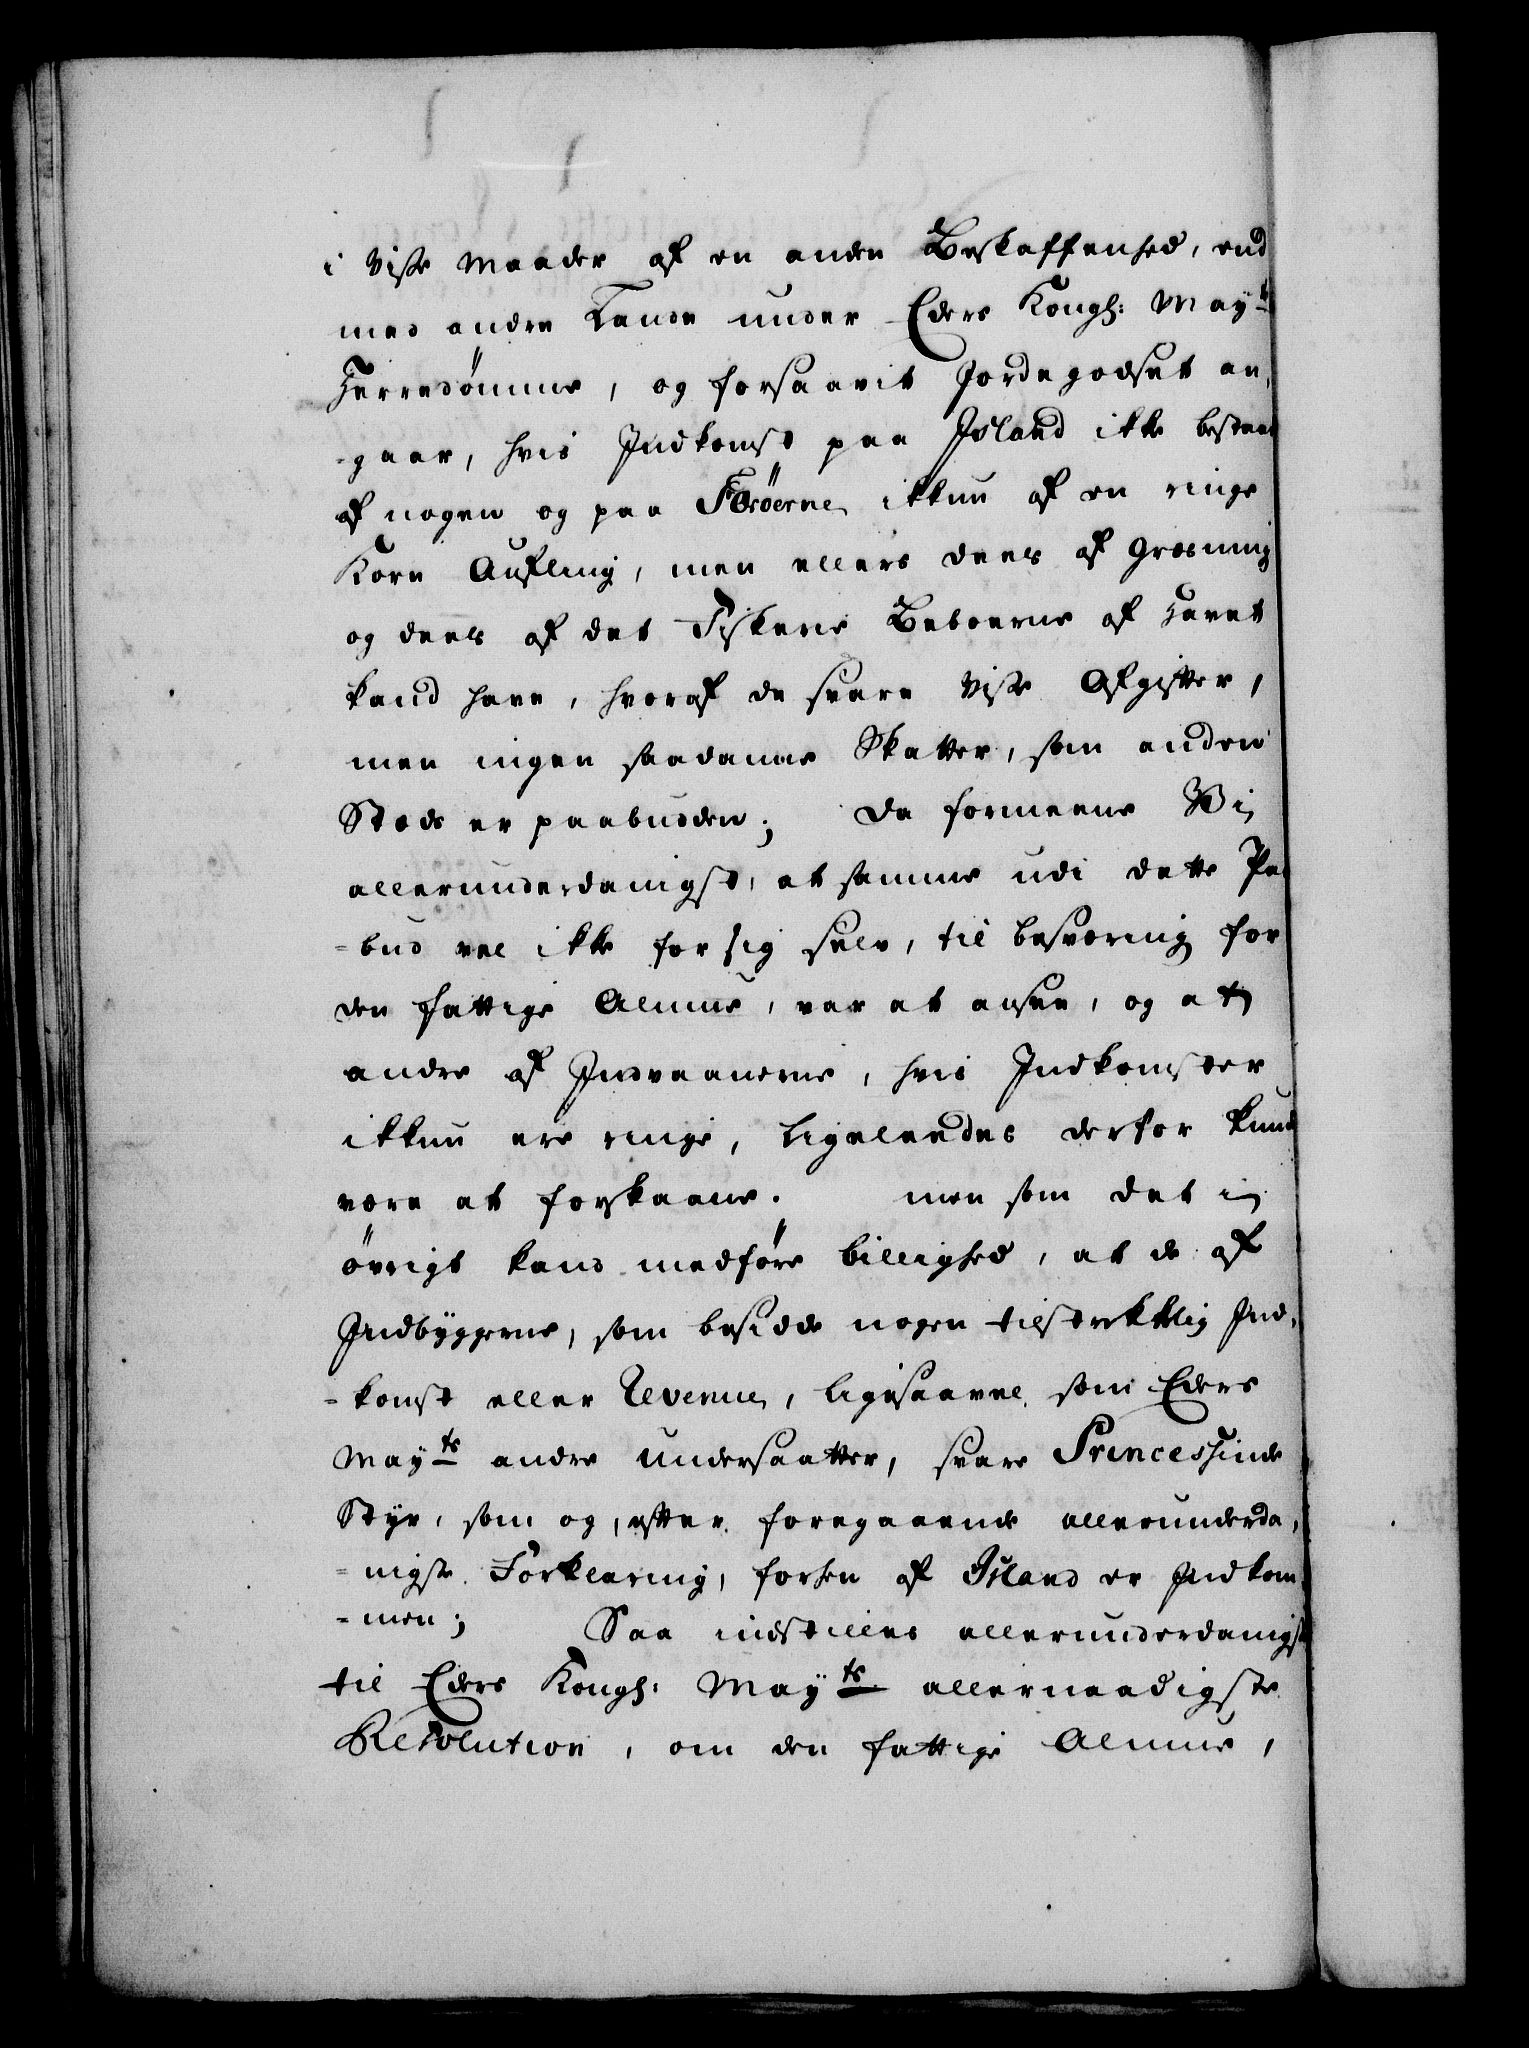 i visse Maader af en anden Beskaffenhed, end
med andre Lande under Eders Kongl: May^ts
Herredömme, og forsaavit Jordegodset an,
-gaar, hvis Indkomst paa Island ikke bestaar
af nogen og paa Færöerne ikkun af en ringe
Korn Aufling, men ellers deels af Græsning
og deels af det Fiskerie Beboerne af Havet
kand have, hvoraf de svare visse Afgifter,
men ingen saadanne Skatter, som anden
Steds er paabudden; Da formeene Vi
allerunderdanigst, at samme udi dette Paa
-bud vel ikke for sig selv, til besværing for
den fattige Almue, var at ansee, og at
andre af Indvaanerne, hvis Indkomster
ikkun ere ringe, ligeleedes derfor kunde
være at forskaane. men som det i
övrigt kand medföre billighed, at de af
Indbyggerne, som besidde nogen tilstrekkelig Ind,
-komst eller Revenue, ligesaavel som Eders
May^ts andre Undersaatter, svare Princessinde
Styr, som og, efter foregaaende allerunderda,
-nigste Forklaring, forhen af Island er Indkom
-men; Saa indstilles allerunderdanigst
til Eders Kongl: May^ts allernaadigste
Resolution, om den fattige Almue,